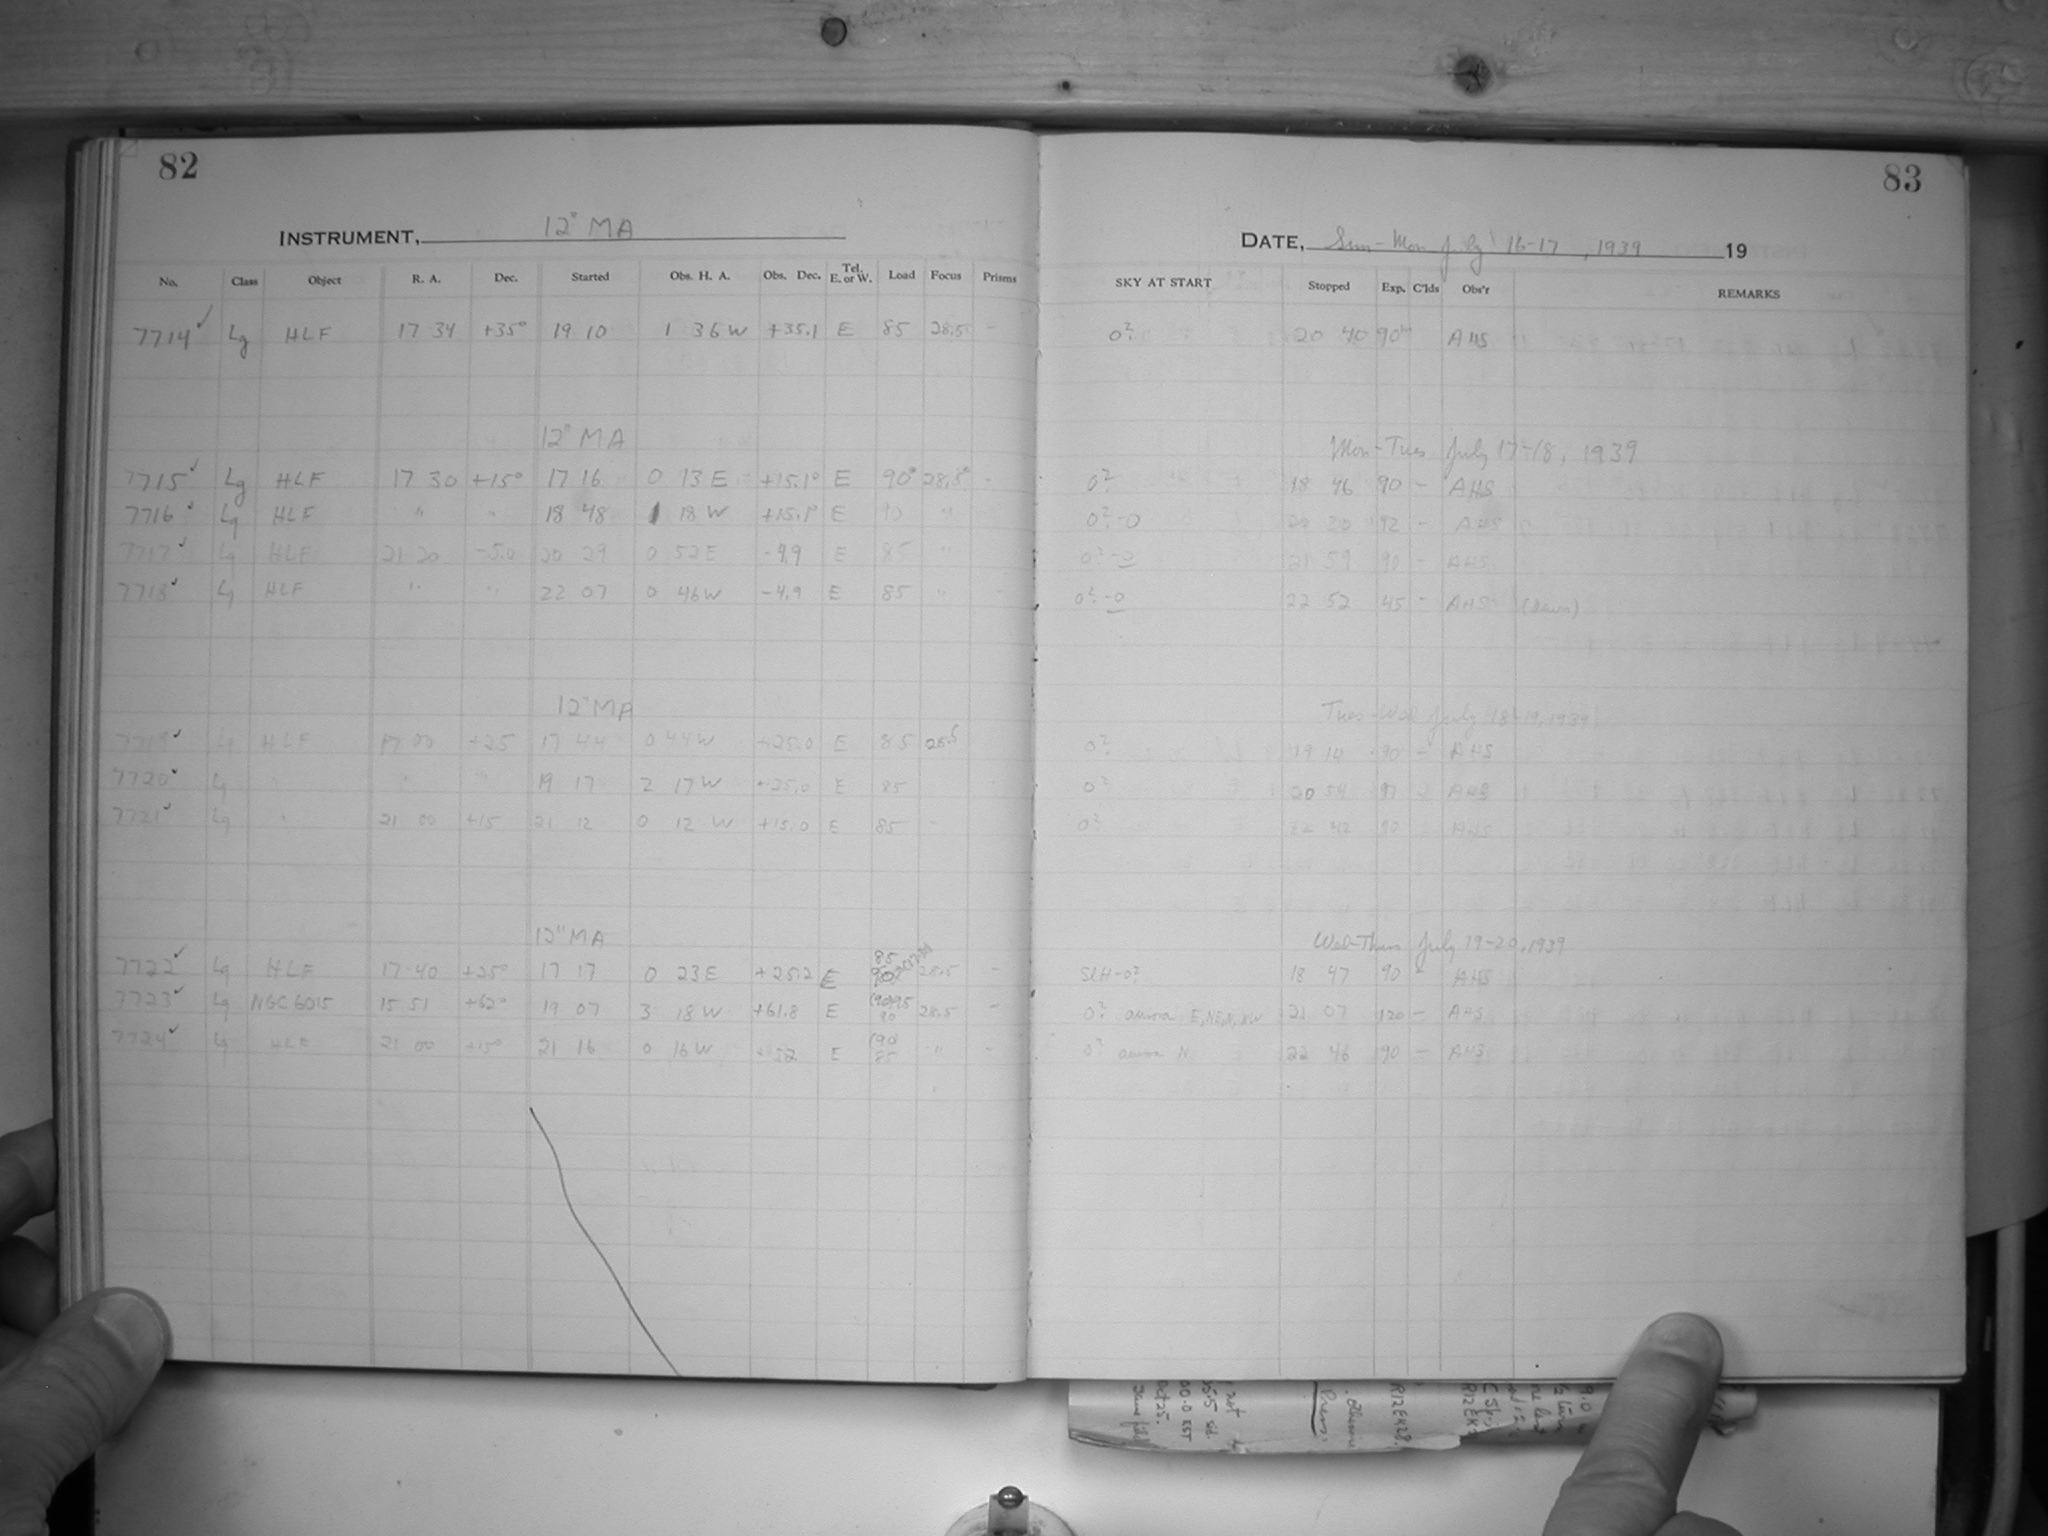 82
INSTRUMENT, 12" MA
No. Class Object R. A. Dec. Started Obs. H. A. Obs. Dec. Tel. E. or W. Load Focus Prisms
7714 Lg HLF 17 34 +35° 19 10 1 36 W +35.1 E 85 28.5 -
12" MA
7715 Lg HLF 17 30 +15° 17 16 0 13 E +15.1° E 90° 28.5° -
7716 Lg HLF " " 18 48 1 18 W +15.1° E 90 "
7717 Lg HLF 21 20 -5.0 20 29 0 52 E -4.9 E 85 "
7718 Lg HLF " " 22 07 0 46 W -4.9 E 85 " -
12" MA
7719 Lg HLF 17 00 +25 17 44 0 44 W +25.0 E 85 28.5
7720 Lg " " " 19 17 2 17 W +25.0 E 85
7721 Lg " 21 00 +15 21 12 0 12 W +15.0 E 85 -
12" MA
7722 Lg HLF 17 40 +25° 17 17 0 23 E +25.2 E 85 28.5 -
7723 Lg NGC 6015 15 51 +62° 19 07 3 18 W +61.8 E (90) 95 90 28.5 -
7724 Lg HLF 21 00 +15° 21 16 0 16 W E (90) 85 " -
83
DATE, Sun-Mon July 16-17, 1939 19
SKY AT START Stopped Exp. C'lds Obs'r REMARKS
0? 20 40 90m AHS
Mon-Tues July 17-18, 1939
0? 18 46 90 - AHS
0?-0 20 20 92 - AHS
0?-0 21 59 90 - AHS
0?-0 22 52 45 - AHS (dawn)
Tues-Wed July 18-19, 1939
0? 19 14 90 - AHS
0? 20 54 97 - AHS
0? 22 42 90 AHS
Wed-Thurs July 19-20, 1939
SlH-0? 18 47 90 - AHS
0? aurora E, NE, N, NW 21 07 120 - AHS
0? aurora N 22 46 90 - AHS